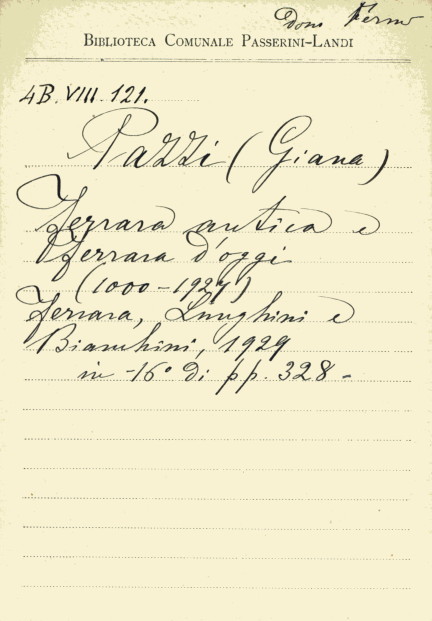 Dono Fermi
BIBLIOTECA COMUNALE PASSERINI-LANDI
4B.VIII.121.
Pazzi (Giana)
Ferrara antica e
Ferrara d'oggi
(1000-1929)
Ferrara, Lunghini e
Bianchini, 1929
in -16° di pp. 328 -